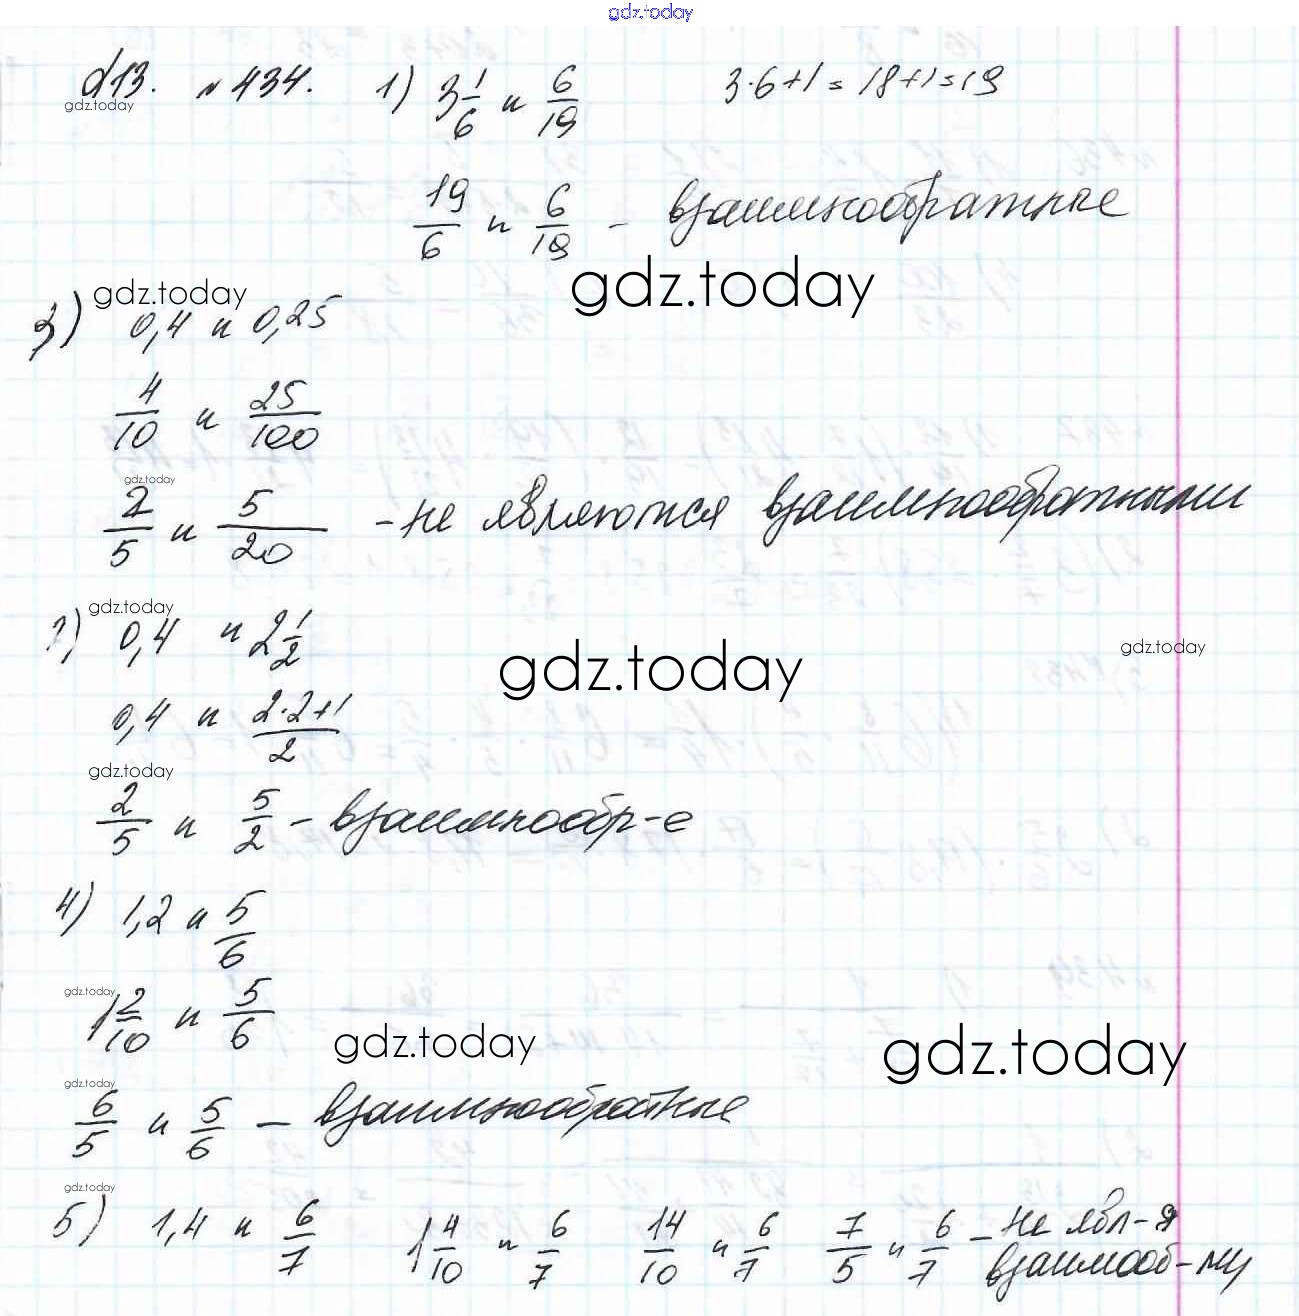 gdz.today
d13. №434. 1) 3 1/6 и 6/19 3·6+1=18+1=19
gdz.today
19/6 и 6/19 – взаимнообратные
gdz.today
gdz.today
3) 0,4 и 0,25
4/10 и 25/100
gdz.today
2/5 и 5/20 – не являются взаимнообратными
gdz.today
2) 0,4 и 2 1/2
gdz.today
gdz.today
0,4 и (2·2+1)/2
gdz.today
2/5 и 5/2 – взаимнообр-е
4) 1,2 и 5/6
gdz.today
1 2/10 и 5/6
gdz.today
gdz.today
gdz.today
6/5 и 5/6 – взаимнообратные
gdz.today
5) 1,4 и 6/7 1 4/10 и 6/7 14/10 и 6/7 7/5 и 6/7 – не явл-я
взаимооб-ми